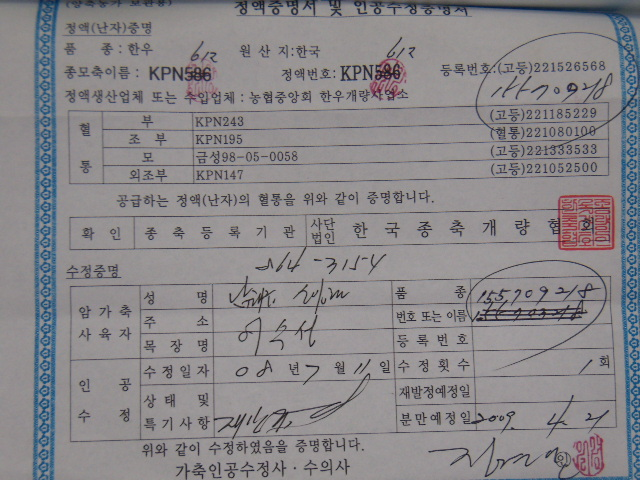 정액증명서 및 인공수정증명서
정액(난자)증명
품 종:한우 612 원 산 지:한국 612
종모축이름 : KPN586 정액번호: KPN586 등록번호:(고등)221526568
정액생산업체 또는 수입업체 : 농협중앙회 한우개량사업소 155709218
혈통 부 KPN243 (고등)221185229
조 부 KPN195 (혈통)221080100
모 금성98-05-0058 (고등)221333533
외조부 KPN147 (고등)221052500
공급하는 정액(난자)의 혈통을 위와 같이 증명합니다.
확 인 종 축 등 록 기 관 사단법인 한 국 종 축 개 량 협 회
수정증명 264-3154
암 가 축 사 육 자 성 명 품 종 155709218
주 소 번호 또는 이름
목 장 명 등 록 번 호
인 공 수 정 수정일자 08 년 7 월 11 일 수 정 횟 수 1 회
상 태 및 특기사항 재발정예정일
분만예정일 2009. 4. 21
위와 같이 수정하였음을 증명합니다.
가축인공수정사 · 수의사 인